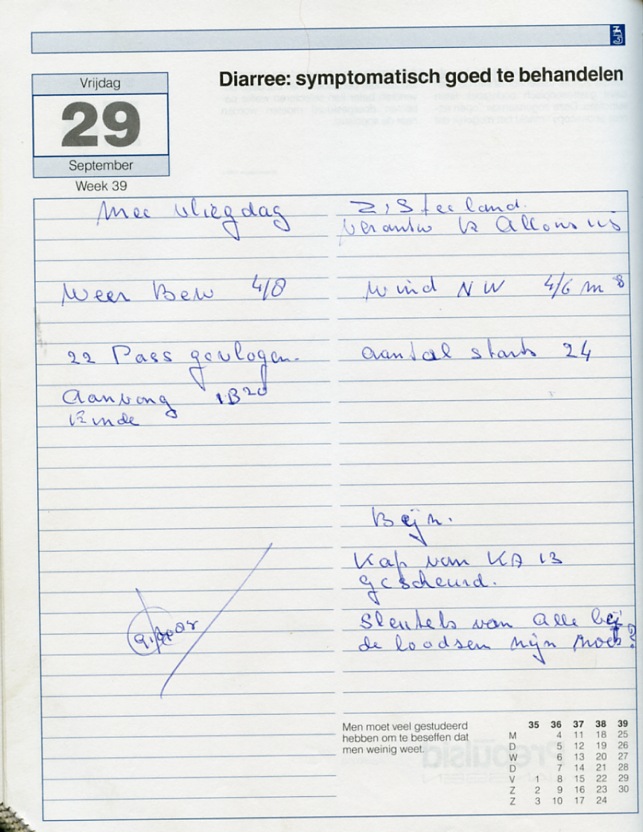 Diarree: symptomatisch goed te behandelen
Vrijdag
29
September
Week 39
vliegdag
Weer Bew 4/8
22 Pass gevlogen.
Aanvang
Einde
Zi, Steeland.
verantw
Wind NW 4/6 m
aantal starts 24
Bijz.
Kap van KA 13
gescheurd.
Sleutels van alle bij
de loodsen zijn
Men moet veel gestudeerd
hebben om te beseffen dat
men weinig weet.
35 36 37 38 39
M 4 11 18 25
D 5 12 19 26
W 6 13 20 27
D 7 14 21 28
V 1 8 15 22 29
Z 2 9 16 23 30
Z 3 10 17 24